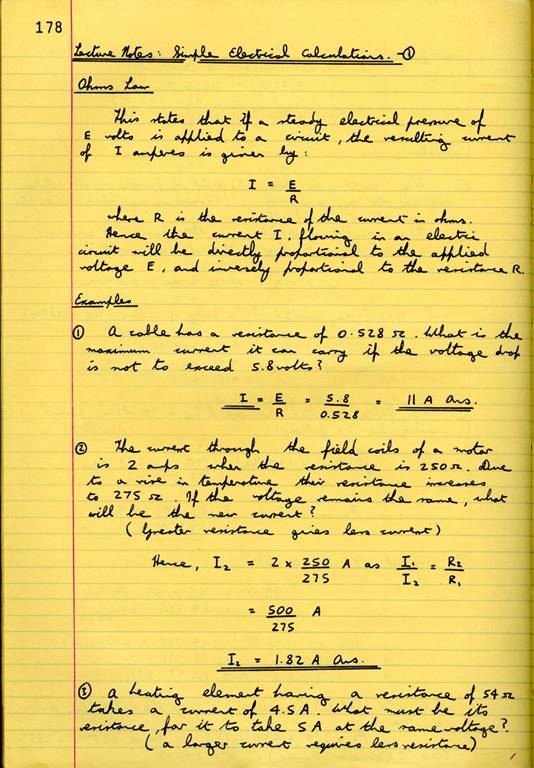 178
Lecture Notes: Simple Electrical Calculations. - ①
Ohms Law
This states that if a steady electrical pressure of
E volts is applied to a circuit, the resulting current
of I amperes is given by:
I = E/R
where R is the resistance of the current in ohms.
Hence the current I, flowing in an electric
circuit will be directly proportional to the applied
voltage E, and inversely proportional to the resistance R.
Examples
① A cable has a resistance of 0.528 Ω. What is the
maximum current it can carry if the voltage drop
is not to exceed 5.8 volts?
I = E/R = 5.8/0.528 = 11 A Ans.
② The current through the field coils of a motor
is 2 amps when the resistance is 250 Ω. Due
to a rise in temperature their resistance increases
to 275 Ω. If the voltage remains the same, what
will be the new current?
(Greater resistance gives less current)
Hence, I₂ = 2 × 250/275 A as I₁/I₂ = R₂/R₁
= 500/275 A
I₂ = 1.82 A Ans.
③ A heating element having a resistance of 54 Ω
takes a current of 4.5A. What must be its
resistance, for it to take 5A at the same voltage?
(a larger current requires less resistance)